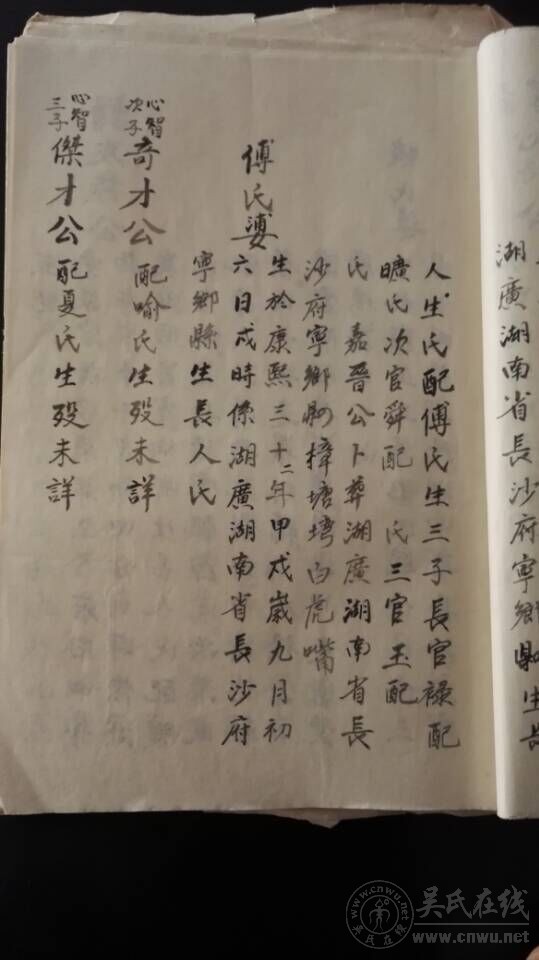 湖廣湖南省長沙府寧鄉縣生長
人生氏配傅氏生三子長官祿配
曠氏次官舜配 氏三官玉配
氏嘉晉公卜葬湖廣湖南省長
沙府寧鄉縣樟塘塆白虎嘴
傅氏婆
生於康熙三十二年甲戌歲九月初
六日戌時係湖廣湖南省長沙府
寧鄉縣生長人氏
心智次子
奇才公配喻氏生歿未詳
心智三子
傑才公配夏氏生歿未詳
吴氏在线
www.cnwu.net